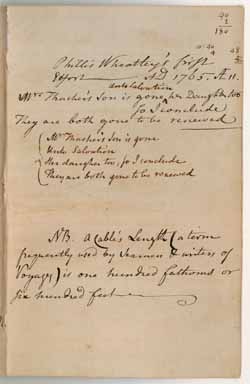 90
2
180
Phillis Wheatley's first
Effort — AD 1765. Æ 11.
unto Salvation
Mrs Thacher's Son is gone her Daughter too
so I conclude
They are both gone to be renewed
Mrs Thacher's Son is gone
Unto Salvation
Her daughter too, so I conclude
They are both gone to be renewed
NB. A Cable's Length (a term
frequently used by Seamen & writers of
Voyages) is one hundred fathoms or
six hundred feet —